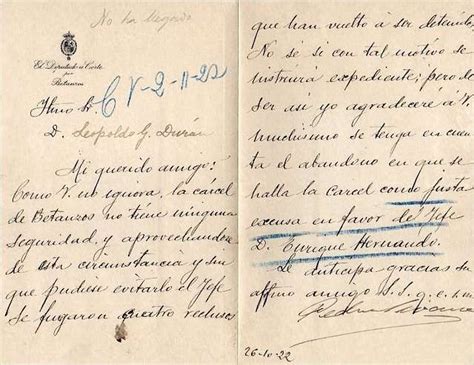 No ha llegado
El Diputado á Cortes
por
Betanzos
C V-2-11-22
Iltmo Sr.
D. Leopoldo G. Durán
Mi querido amigo:
Como V. no ignora, la carcel
de Betanzos no tiene ninguna
seguridad, y aprovechandose
de esta circunstancia y sin
que pudiese evitarlo el Jefe
se fugaron cuatro reclusos
que han vuelto á ser detenidos,
No se si con tal motivo se
instruirá expediente; pero de
ser asi yo agradeceré á V.
muchisimo se tenga en cuen
ta el abandono en que se
halla la Carcel como justa
excusa en favor de Jefe
D. Enrique Hernando.
Le anticipa gracias su
affmo amigo S.S. q. e. s. m.
26-10-22